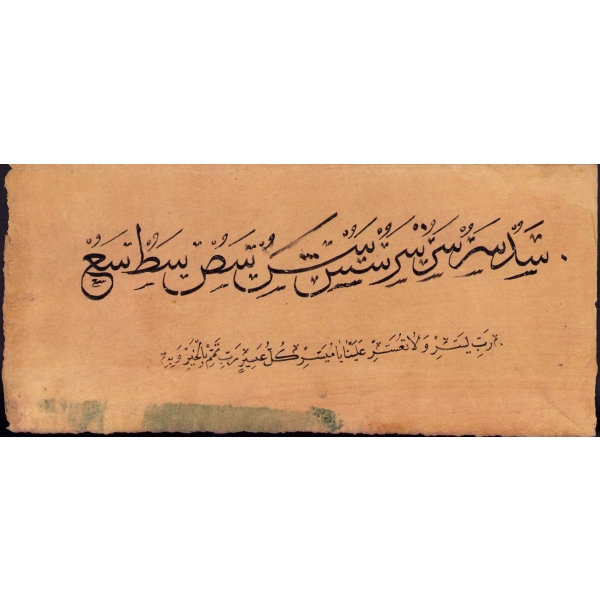 سد سر سر سس سص سط سع
رب يسر ولا تعسر علينا يا ميسر كل عسير رب تمم بالخير وبه